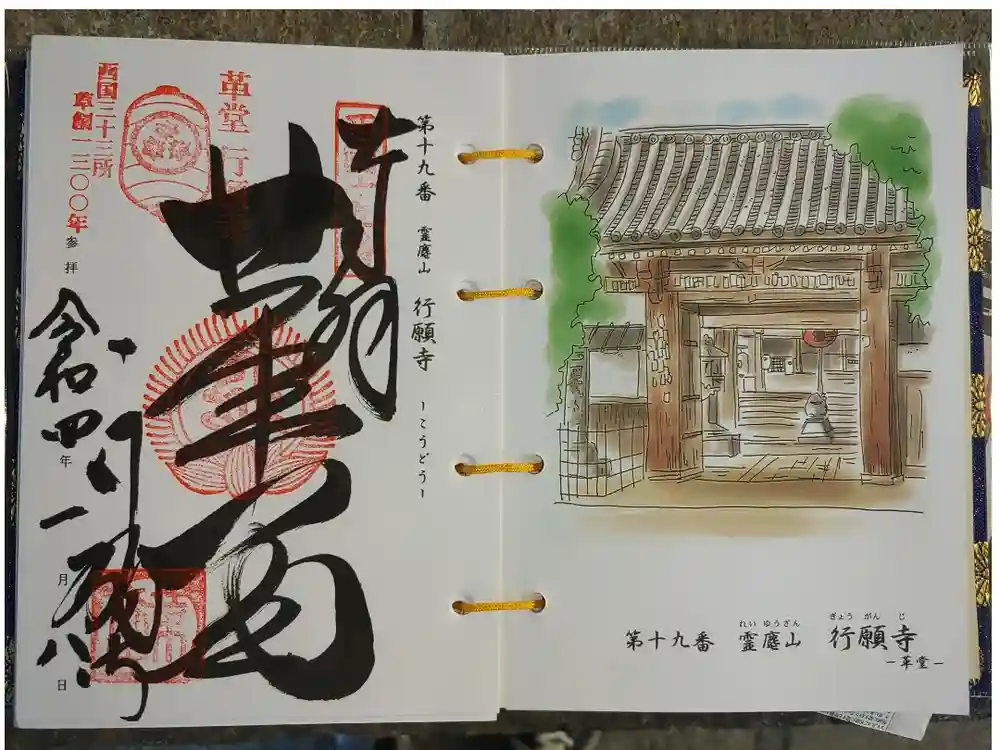 第十九番 霊麀山 行願寺 ーこうどうー
革堂
革堂行
西国三十三所
草創一三〇〇年
参拝
令和四年一月八日
れいゆうざん ぎょうがんじ
第十九番 霊麀山 行願寺
ー革堂ー